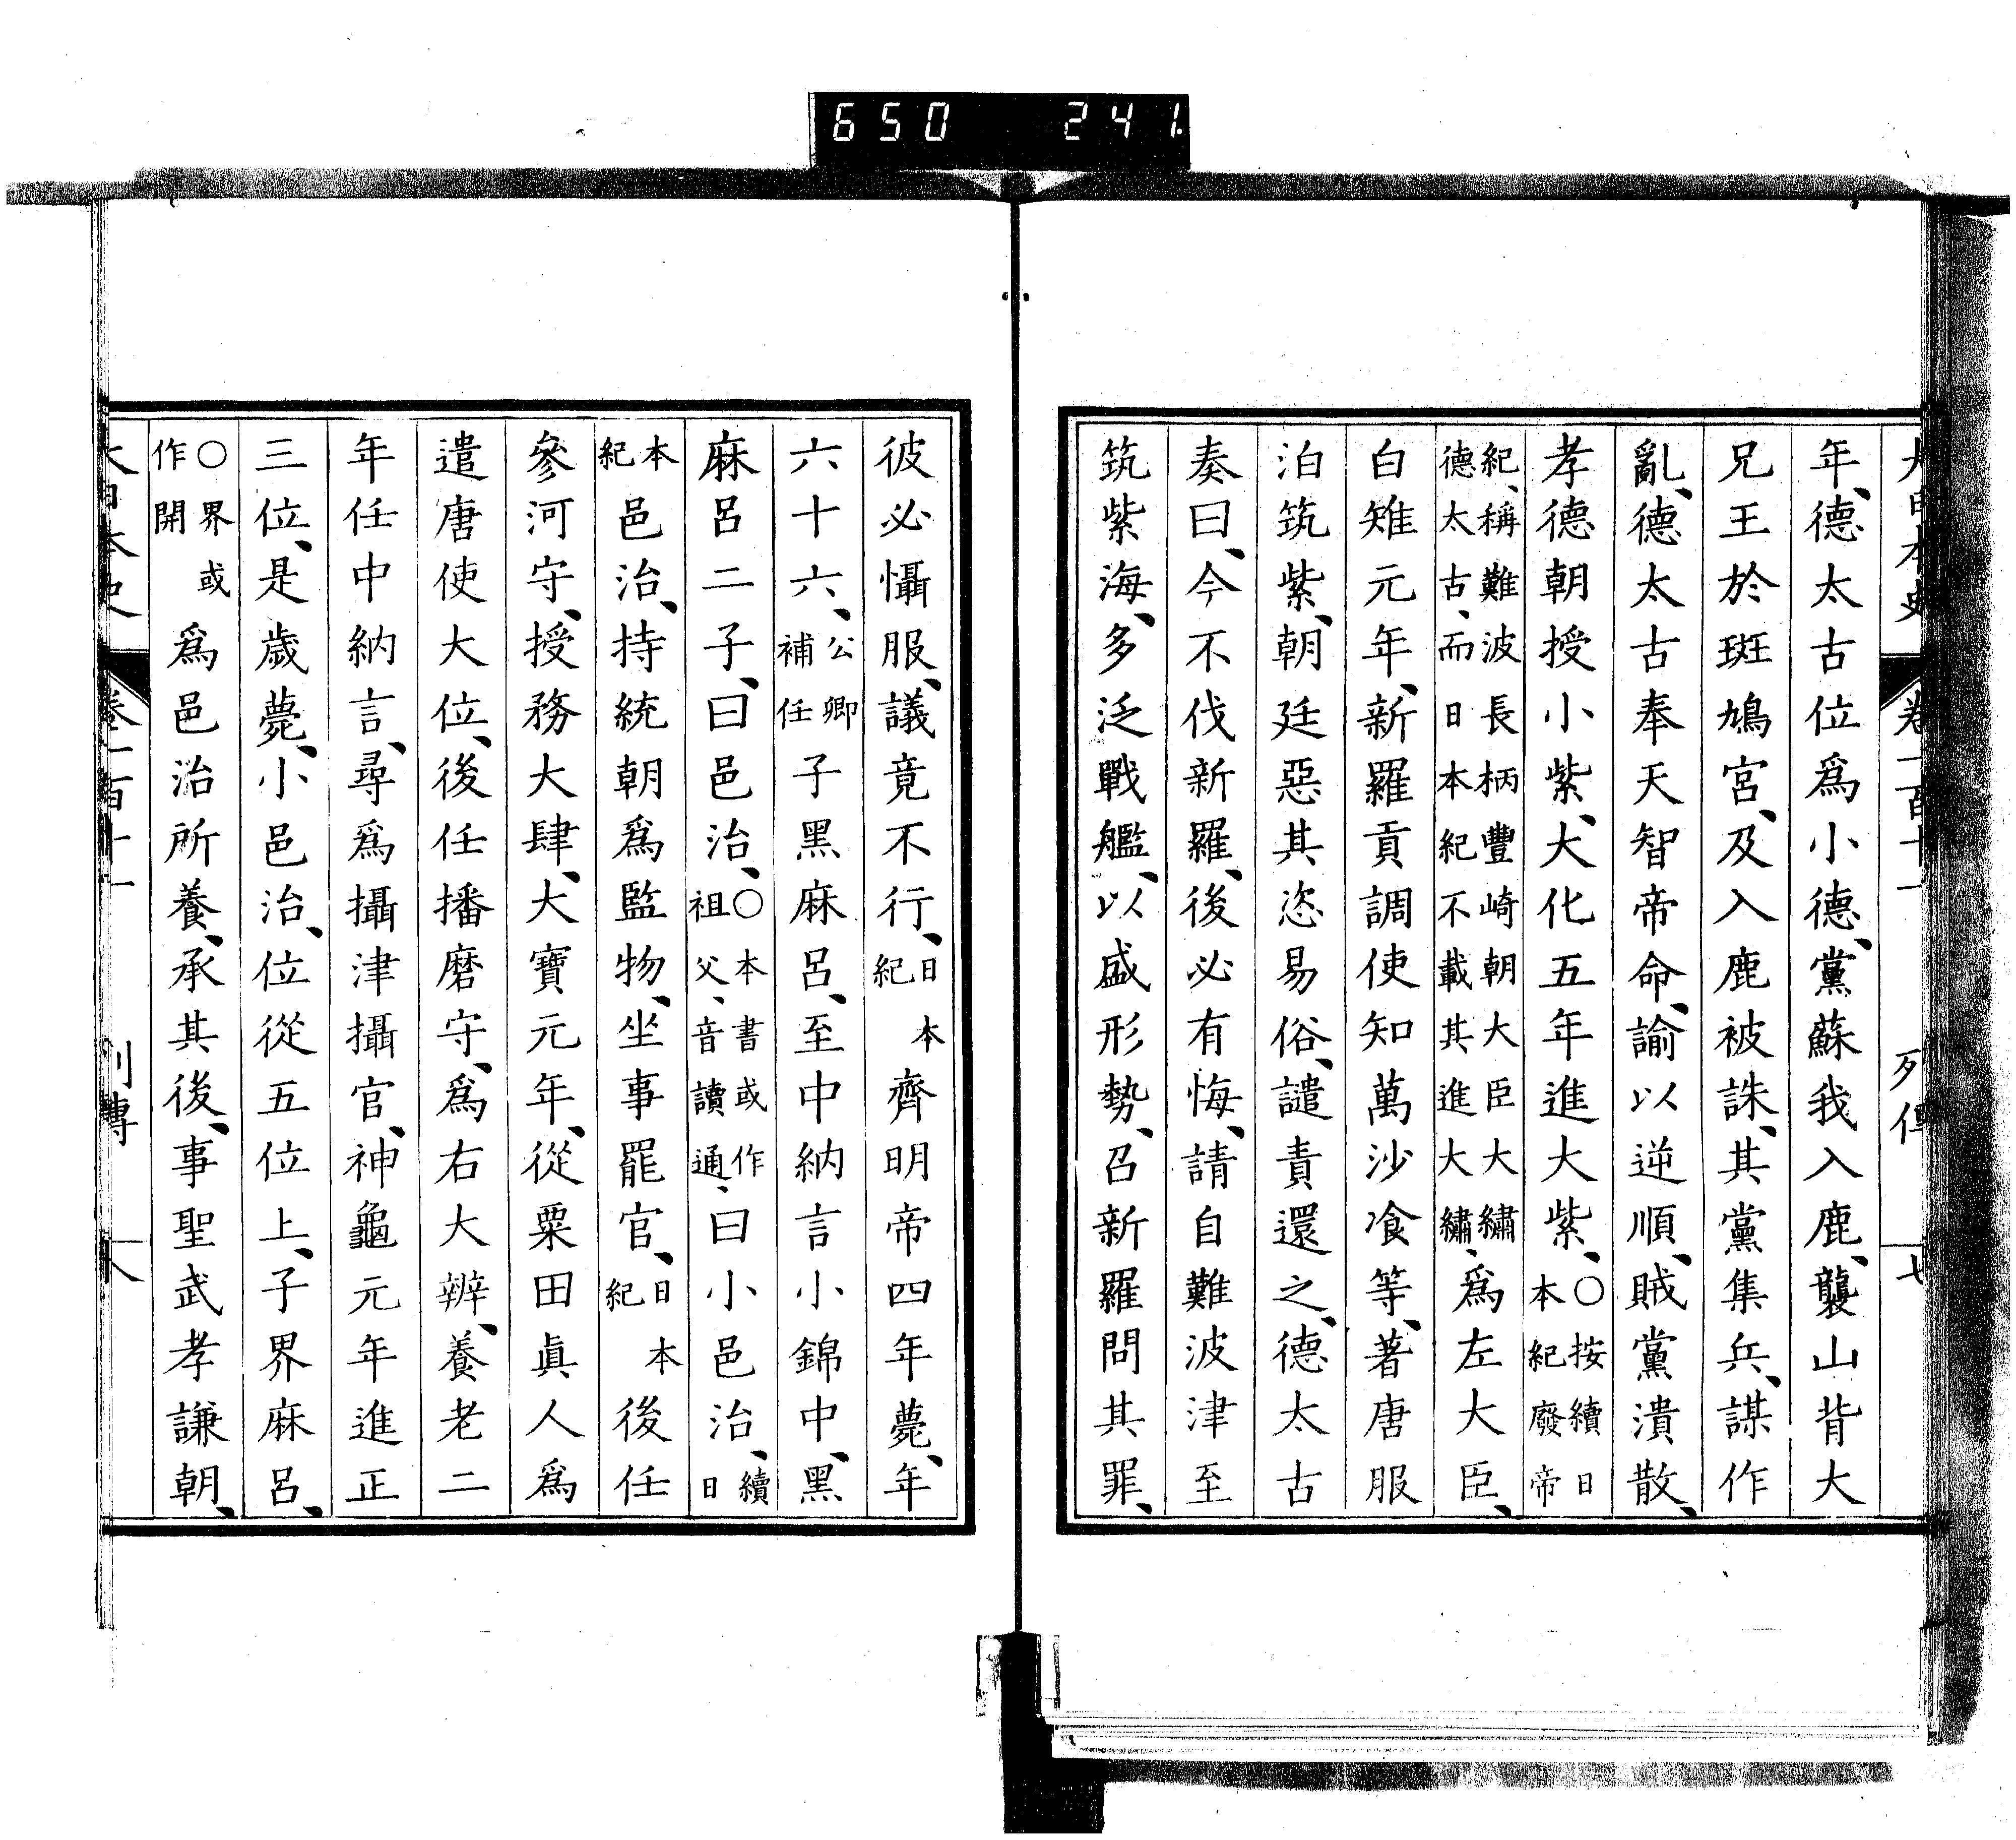 650 241
大日本史 卷一百十一 列傳 七
年、德太古位爲小德、黨蘇我入鹿、襲山背大
兄王於斑鳩宮、及入鹿被誅、其黨集兵、謀作
亂、德太古奉天智帝命、諭以逆順、賊黨潰散、
孝德朝授小紫、大化五年進大紫、○按續日本紀廢帝
紀、稱難波長柄豐崎朝大臣大繡德太古、而日本紀不載其進大繡、爲左大臣、
白雉元年、新羅貢調使知萬沙飡等、著唐服
泊筑紫、朝廷惡其恣易俗、譴責還之、德太古
奏曰、今不伐新羅、後必有悔、請自難波津至
筑紫海、多泛戰艦、以盛形勢、召新羅問其罪、
彼必懾服、議竟不行、日本紀齊明帝四年薨、年
六十六、公卿補任子黑麻呂、至中納言小錦中、黑
麻呂二子、曰邑治、○本書或作祖父、音讀通、曰小邑治、續日
本紀邑治、持統朝爲監物、坐事罷官、日本紀後任
參河守、授務大肆、大寶元年、從粟田眞人爲
遣唐使大位、後任播磨守、爲右大辨、養老二
年任中納言、尋爲攝津攝官、神龜元年進正
三位、是歲薨、小邑治、位從五位上、子界麻呂、
○界或作開爲邑治所養、承其後、事聖武孝謙朝、
大日本史 卷一百十一 列傳 八